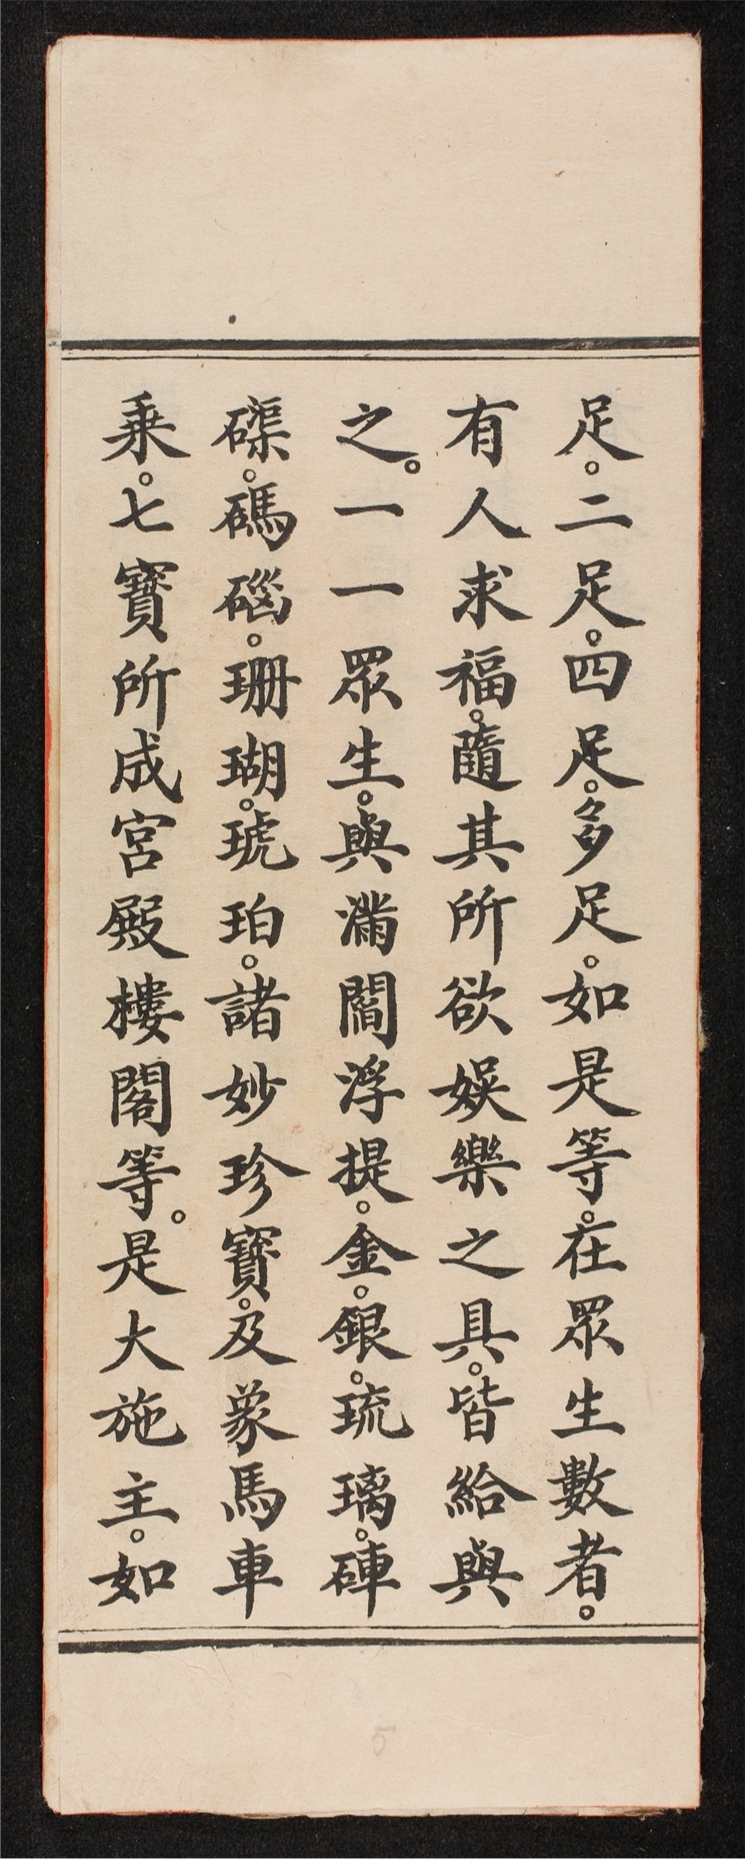 足。二足。四足。多足。如是等。在眾生數者。
有人求福。隨其所欲娛樂之具。皆給與
之。一一眾生。與滿閻浮提。金。銀。琉璃。硨
磲。碼碯。珊瑚。琥珀。諸妙珍寶。及象馬車
乘。七寶所成宮殿樓閣等。是大施主。如
5